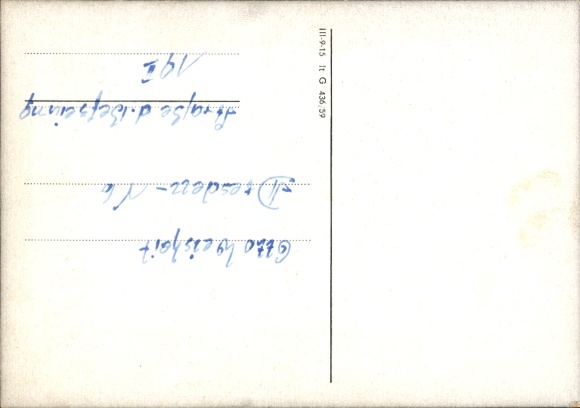 Otto Weishait
Dresden - N 6
Straße d. Befreiung
19 I
III-9-15 It G 436/59